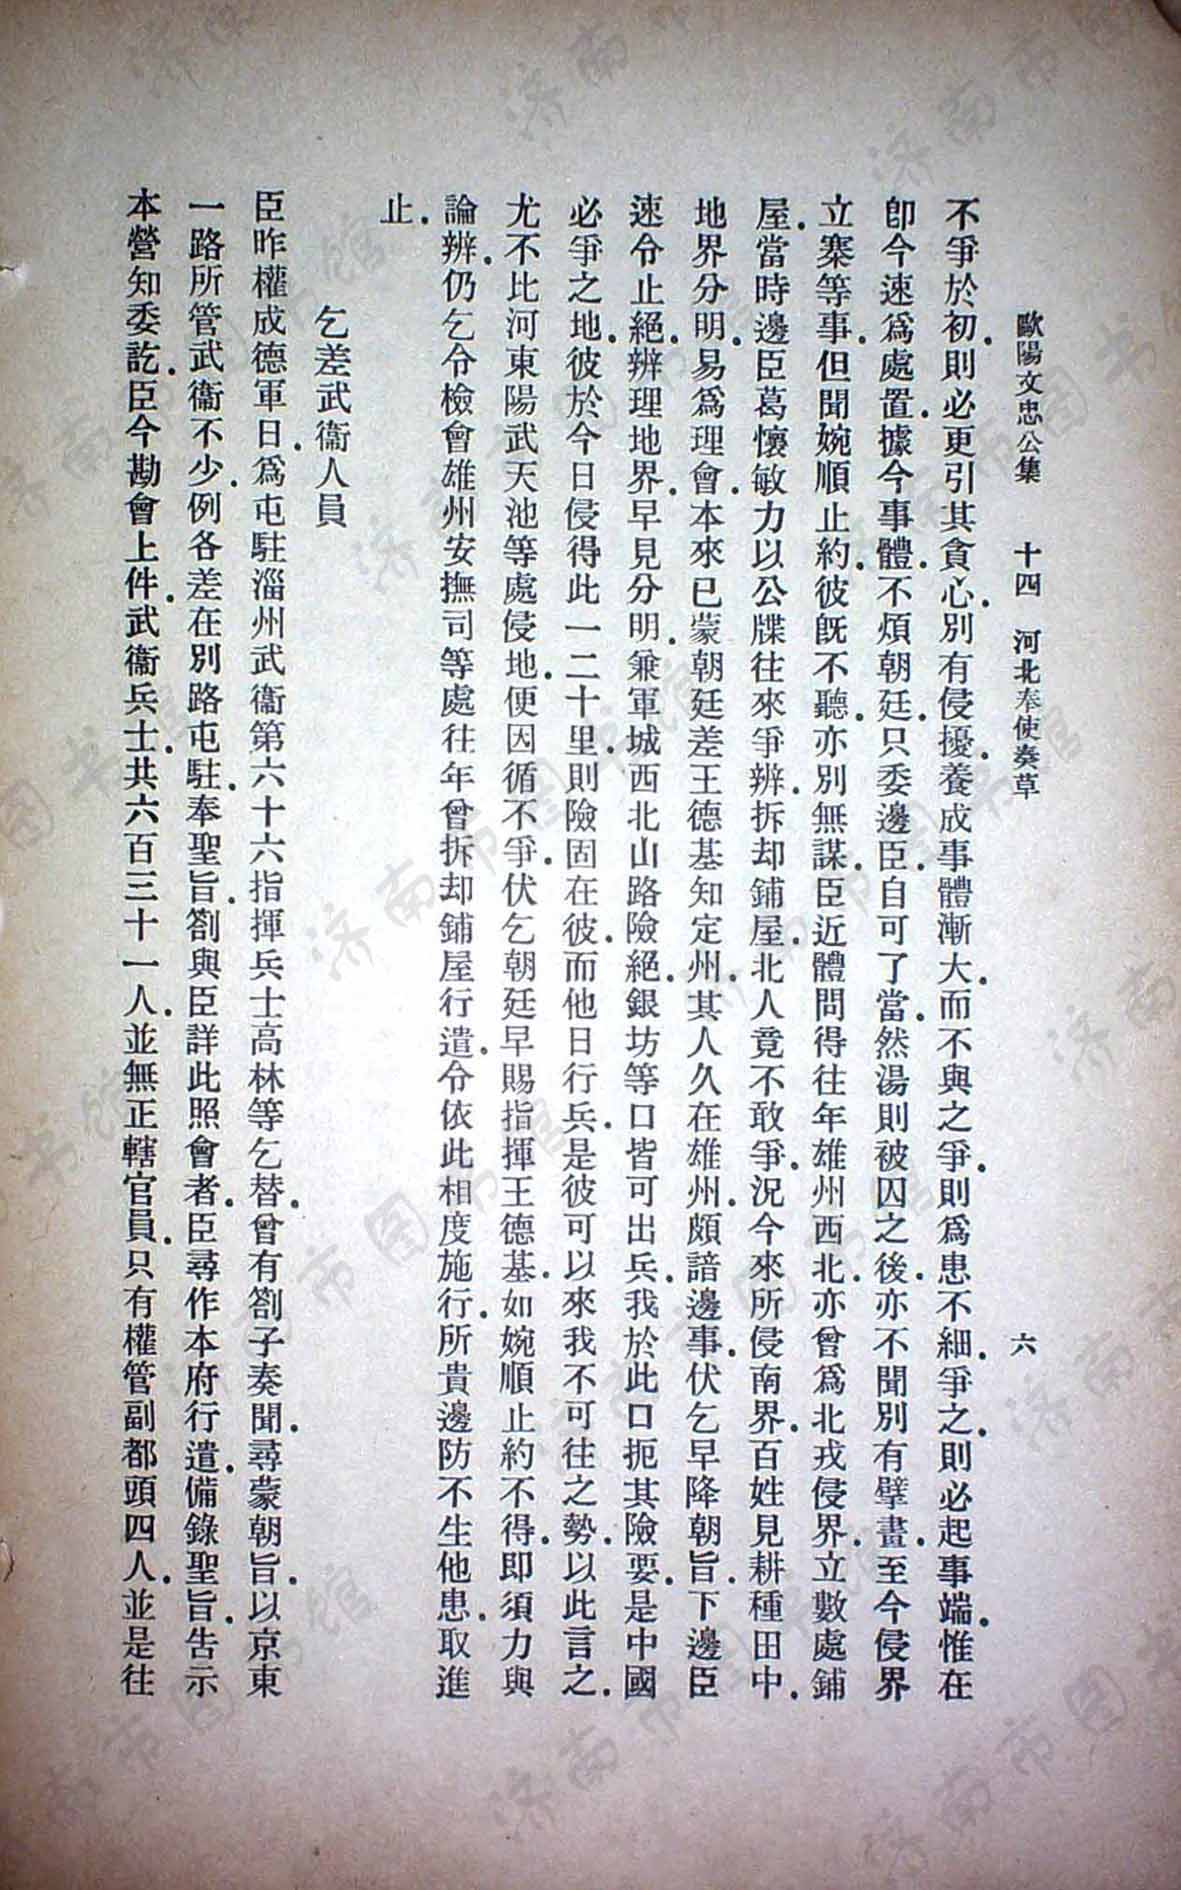 歐陽文忠公集　十四　河北奉使奏草　六
不爭於初.則必更引其貪心.別有侵擾.養成事體漸大.而不與之爭.則爲患不細.爭之.則必起事端.惟在
卽今速爲處置.據今事體.不煩朝廷.只委邊臣.自可了當.然湯則被囚之後.亦不聞別有擘畫.至今侵界
立寨等事.但聞婉順止約.彼旣不聽.亦別無謀.臣近體問得往年雄州西北.亦曾爲北戎侵界.立數處鋪
屋.當時邊臣葛懷敏力以公牒往來爭辨.拆却鋪屋.北人竟不敢爭.況今來所侵南界.百姓見耕種田中.
地界分明.易爲理會.本來已蒙朝廷差王德基知定州.其人久在雄州.頗諳邊事.伏乞早降朝旨.下邊臣
速令止絕.辨理地界.早見分明.兼軍城西北山路險絕.銀坊等口皆可出兵.我於此口扼其險要.是中國
必爭之地.彼於今日侵得此一二十里.則險固在彼.而他日行兵.是彼可以來我不可往之勢.以此言之.
尤不比河東陽武天池等處侵地.便因循不爭.伏乞朝廷早賜指揮王德基.如婉順止約不得.卽須力與
論辨.仍乞令檢會雄州安撫司等處往年曾拆却鋪屋行遣.令依此相度施行.所貴邊防不生他患.取進
止.
乞差武衞人員
臣昨權成德軍日.爲屯駐淄州武衞第六十六指揮兵士高林等乞替.曾有劄子奏聞.尋蒙朝旨.以京東
一路所管武衞不少.例各差在別路屯駐.奉聖旨.劄與臣詳此照會者.臣尋作本府行遣.備錄聖旨.告示
本營知委訖.臣今勘會上件.武衞兵士.共六百三十一人.並無正轄官員.只有權管副都頭四人.並是往
济南市图书馆